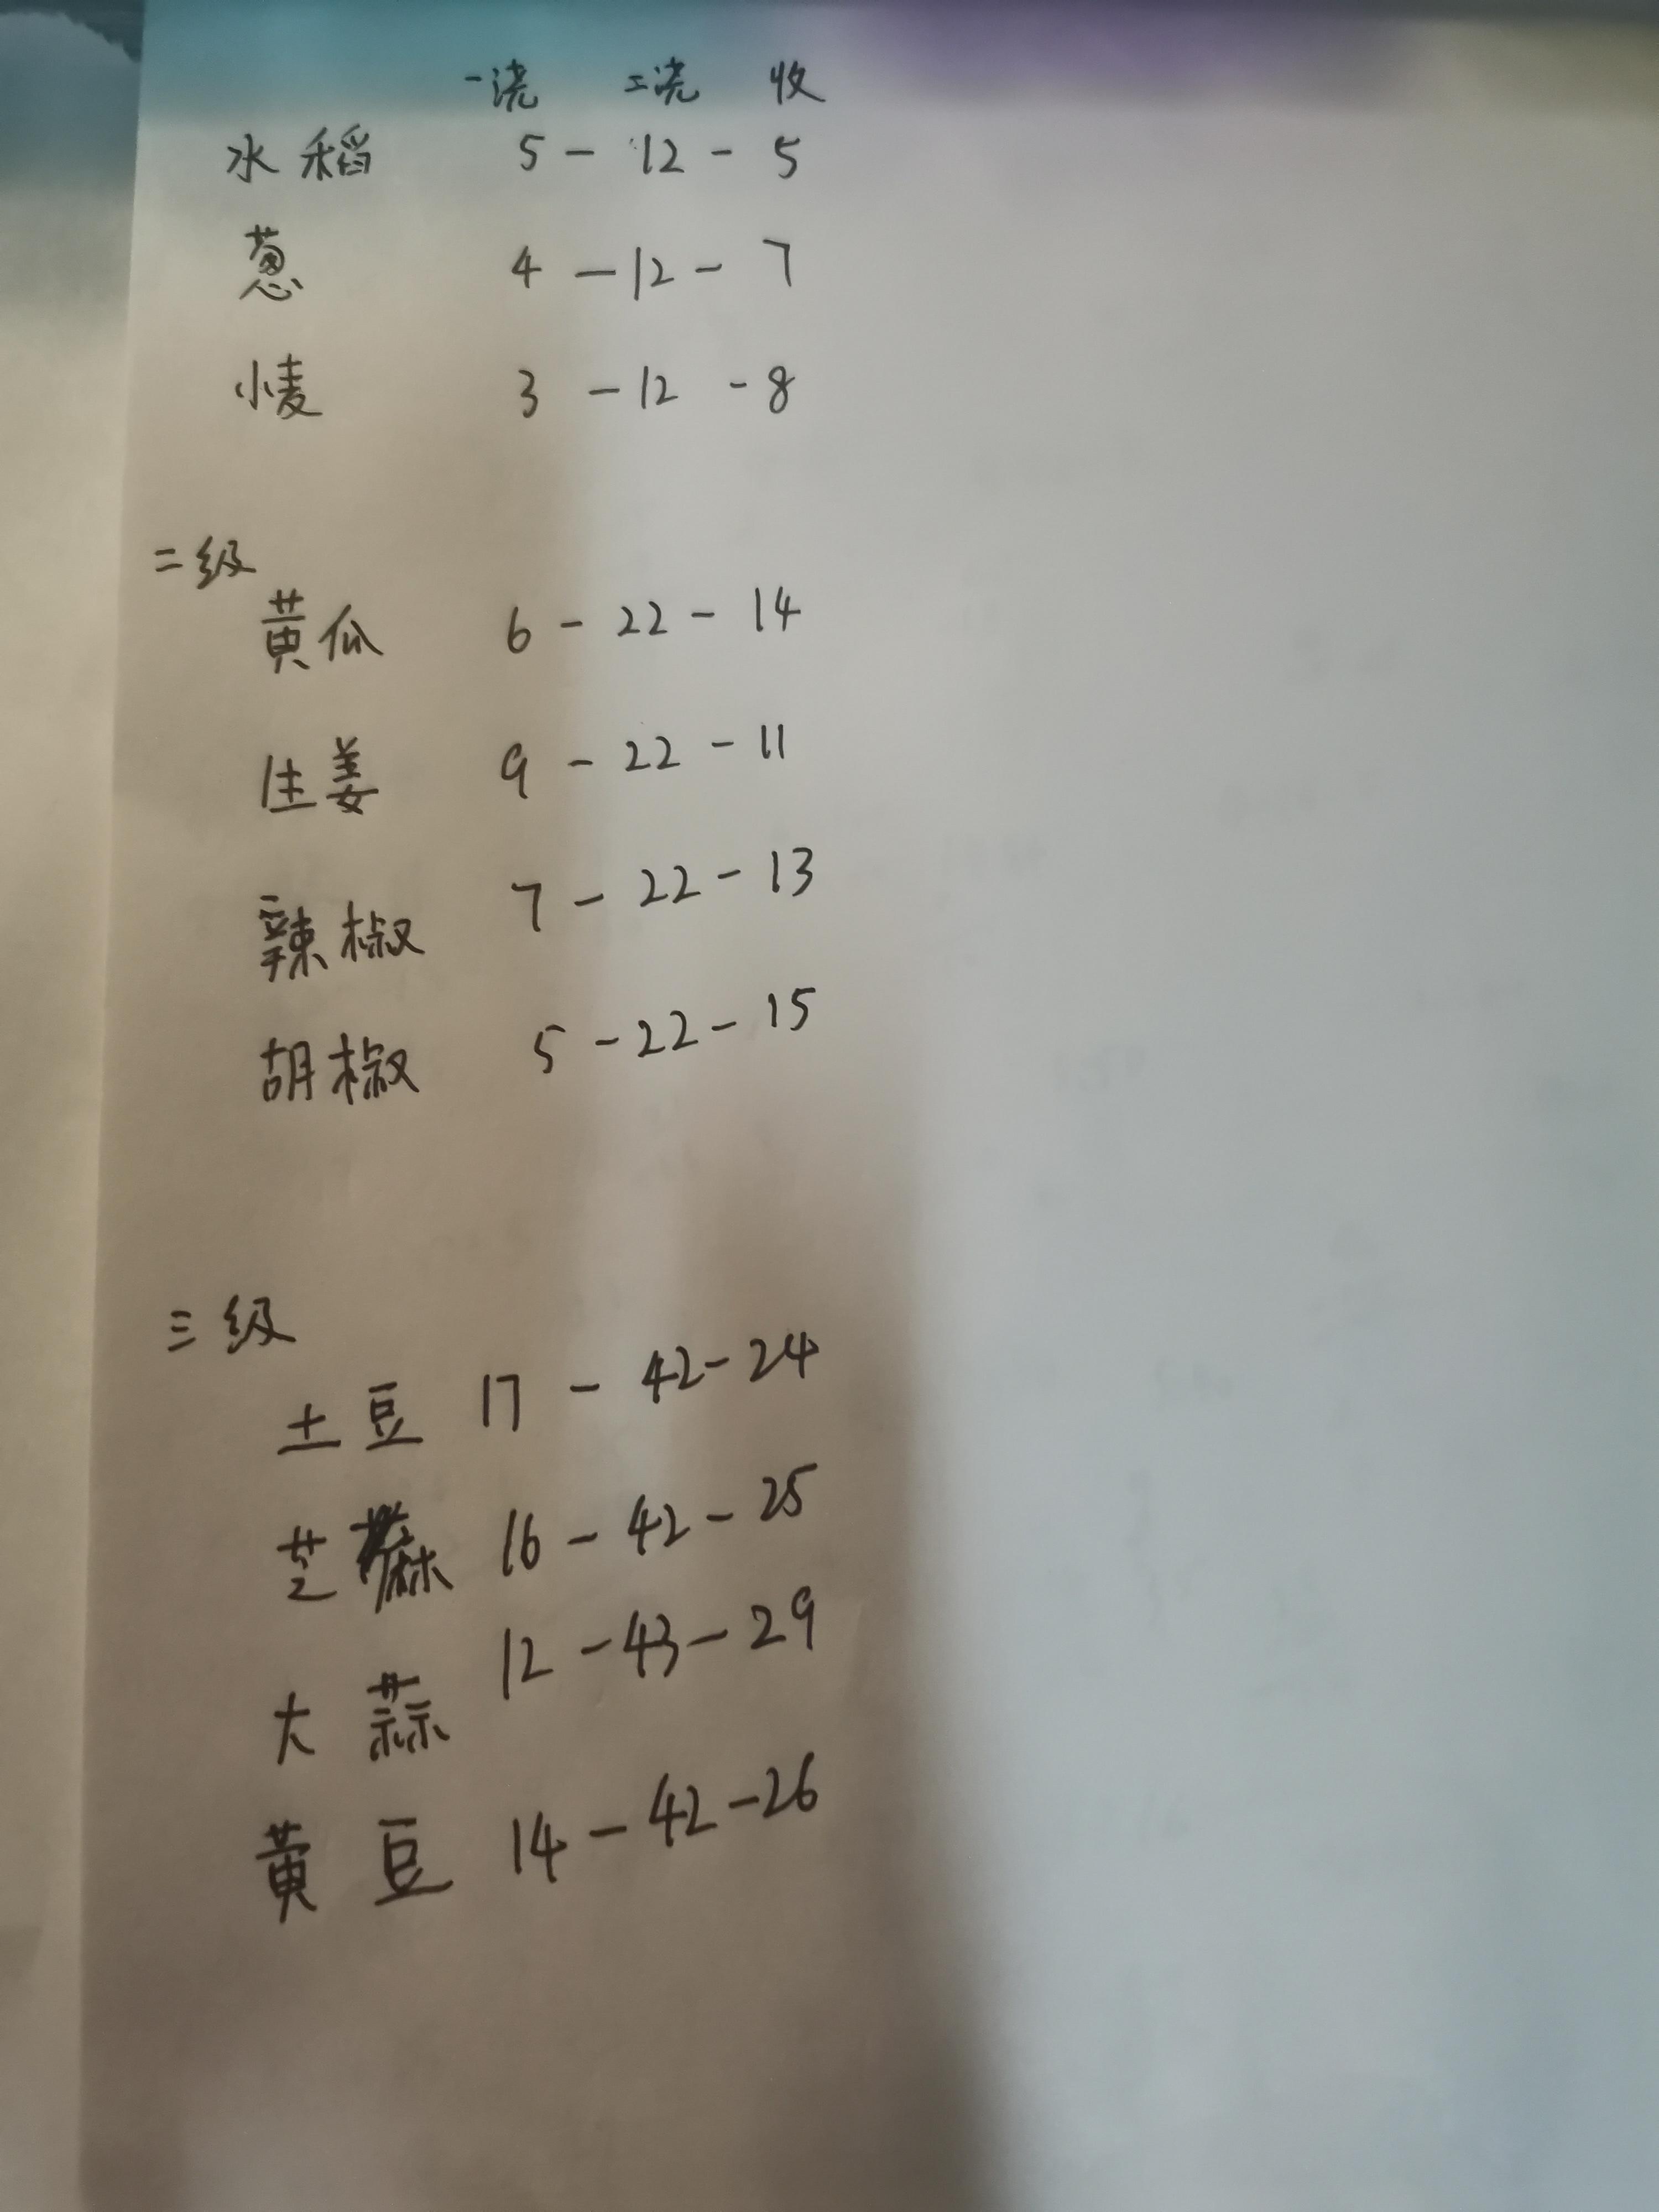 一浇 二浇 收
水稻 5 - 12 - 5
葱 4 - 12 - 7
小麦 3 - 12 - 8
二级
黄瓜 6 - 22 - 14
生姜 9 - 22 - 11
辣椒 7 - 22 - 13
胡椒 5 - 22 - 15
三级
土豆 17 - 42 - 24
芝麻 16 - 42 - 25
大蒜 12 - 43 - 29
黄豆 14 - 42 - 26